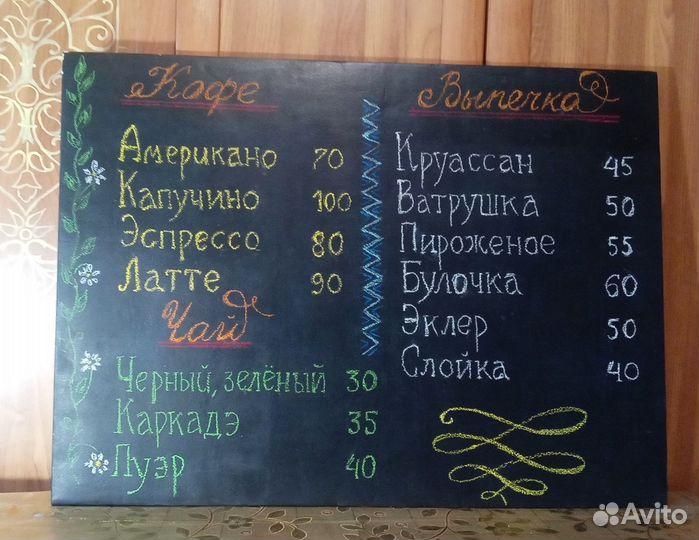 Кофе
Американо 70
Капучино 100
Эспрессо 80
Латте 90
Чай
Черный, зелёный 30
Каркадэ 35
Пуэр 40
Выпечка
Круассан 45
Ватрушка 50
Пироженое 55
Булочка 60
Эклер 50
Слойка 40
Avito